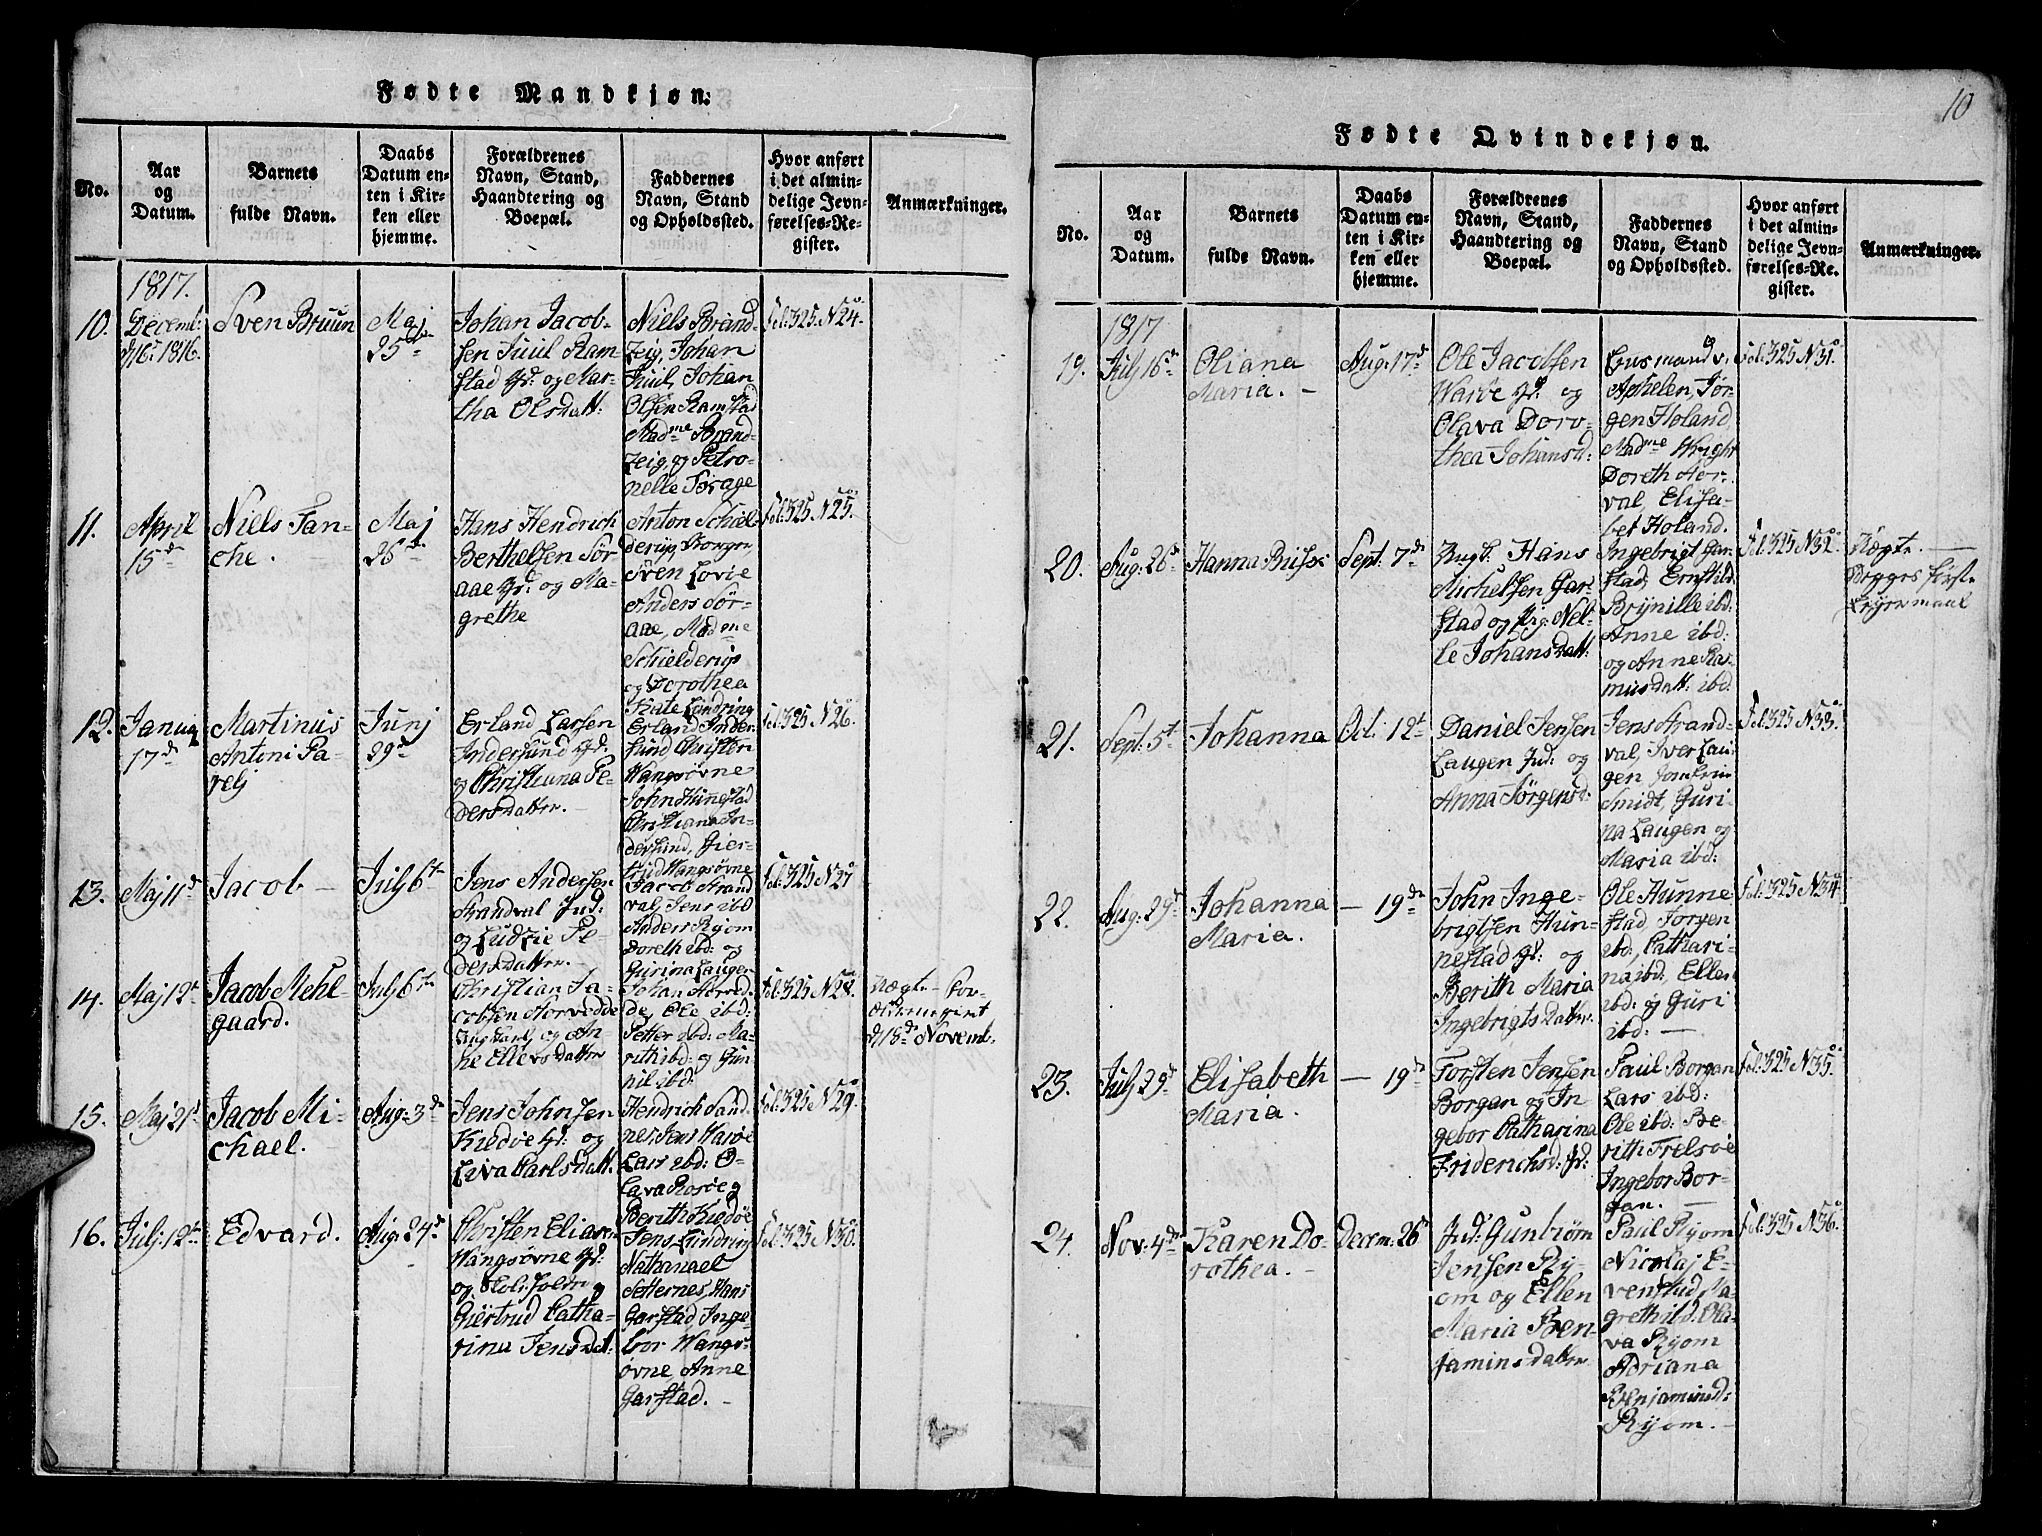 Fødte Mandkjøn.
No.
Aar
og
Datum.
Barnets
fulde Navn.
Daabs
Datum en-
ten i Kir-
ken eller
hjemme.
Forældrenes
Navn, Stand,
Haandtering og
Boepæl.
Faddernes
Navn, Stand
og Opholdssted.
Hvor anført
i det almin-
delige Jevn-
førelses-Re-
gister.
Anmærkninger.
1817.
10.
Decemb:
d 16. 1816.
Sven Bruun
Maj
25de
Johan Jacob-
sen Juul Ram
stad Gd: og Mar-
tha Olsdatt:
Niels Brand-
zeig, Johan
Juul, Johan
Olsen Ramstad
Madme Brand-
zeig, og Petro-
nelle Forage
Fol: 325. No 24.
11.
April
15de
Niels Tan-
che.
Maj
26de
Hans Hendrich
Berthelsen Sør
aae Gd: og Ma-
grethe
Anton Schiel-
derup
Sven Lovie
Anders Sør-
aae, Madme
Schielderup
og Dorothea
Fol: 325. No 25.
12.
Januar
17de
Martinus
Antoni Pa-
velj
Junj
29de
Erland Larsen
Indersund Gd:
og Christiana Pe-
dersdatter.
Erland Inder
sund Christen
Wangsøvne
John Hunnestad
Christiana In-
dersund, Gier-
trud Wangsøvne
Fol: 325 No 26.
13.
Maj 11te
Jacob —
Julj 6te
Jens Andersen
Strandval Ind:
og Ludzie Pe-
dersdatter.
Jacob Strand
val, Jens ibd
Anders Ryom
Doreth ibd: og
Gurina Laugen
Fol: 325 No 27
14.
Maj 12te
Jacob Mehl-
gaard.
Julj 6te
Christian Ja-
cobsen Horvedde
og An-
ne Ellevsdatter
Johan Horved-
de, Ole ibd:
Petter ibd: Ma-
rith ibd: og Gun-
nil ibd.
Fol: 325 No 28.
Uægte
d 18de Novemb.
15.
Maj 21de
Jacob Mi-
chael.
Aug: 3de
Jens Johnsen
Kudøe Gd: og
Liva Carlsdatt.
Hendrich Sand
nes, Jens Warøe
Lars ibd: O-
lava Rosøe og
Berith Kudøe
Fol: 325 No 29.
16.
Julj 12te
Edvard.
Aug: 24de
Christen Eliasen
Wangsøvne Gd:
og
Giertrud Catha-
rina Jensdt:
Jens Lundring
Nathanael
Setternes, Hans
Garstad Inge-
bor Wangs-
øvne, Anne
Garstad. —
Fol: 325 No 30.
10
Fødte Qvindekjøn.
No.
Aar
og
Datum.
Barnets
fulde Navn.
Daabs
Datum en-
ten i Kir-
ken eller
hjemme.
Forældrenes
Navn, Stand,
Haandtering og
Boepæl.
Faddernes
Navn, Stand
og Opholdssted.
Hvor anført
i det almin-
delige Jevn-
førelses-Re-
gister.
Anmærkninger.
1817
19.
Julj 16de
Oliana
Maria. —
Aug: 17de
Ole Jacobsen
Warøe Gd: og
Olava Doro-
thea Johansd:
Aphelen, Jør-
gen Holand,
Madme Wright
Doreth Hor-
val, Elisa-
bet Holand.
Fol: 325 No 31.
20.
Aug: 26de
Hanna
Sept: 7de
Ungk. Hans
Michelsen Gar-
stad og Pig: Nel-
le Johansdatt:
Ingebrigt Gar-
stad,
Brynille ibd:
Anne ibd:
og Anne Ras-
musdatt: ibd:
Fol: 325 No 32.
Uægte. —
Begges første
Leyermaal
21.
Sept: 5te
Johanna
Oct: 12te
Daniel Jensen
Laugen Ind: og
Anna Jørgensd:
Jens Strand-
val, Iver Lau-
gen
Smidt, Guri-
na Laugen og
Maria ibd:
Fol: 325 No 33.
22.
Aug: 29de
Johanna
Maria.
— 19de
John Inge-
brigtsen Hun-
nestad Gd: og
Berith Maria
Ingebrigtsdatter.
Ole Hunne-
stad, Jørgen
ibd, Cathari-
na ibd, Ellen
ibd: og Guri
ibd: —
Fol: 325 No 34.
23.
Julj 29de
Elisabeth
Maria.
— 19de
Torsten Jensen
Borgan og In-
gebor Catharina
Friderichsd: Gd:
Paul Borgan
Lars ibd:
Ole ibd: Be-
rith Trelsøe
Ingebor Bor-
gan. —
Fol: 325 No 35.
24.
Nov: 4de
Karen Do-
rothea. —
Decem: 26de
Ind: Gunbiørn
Jensen Ry-
om og Ellen
Maria Ben-
jaminsdatter
Paul Ryom
Nicolaj E-
venstad, Ma-
greth ibd. Ola-
va Ryom
Adriana
Benjaminsd:
Ryom. —
Fol: 325 No 36.